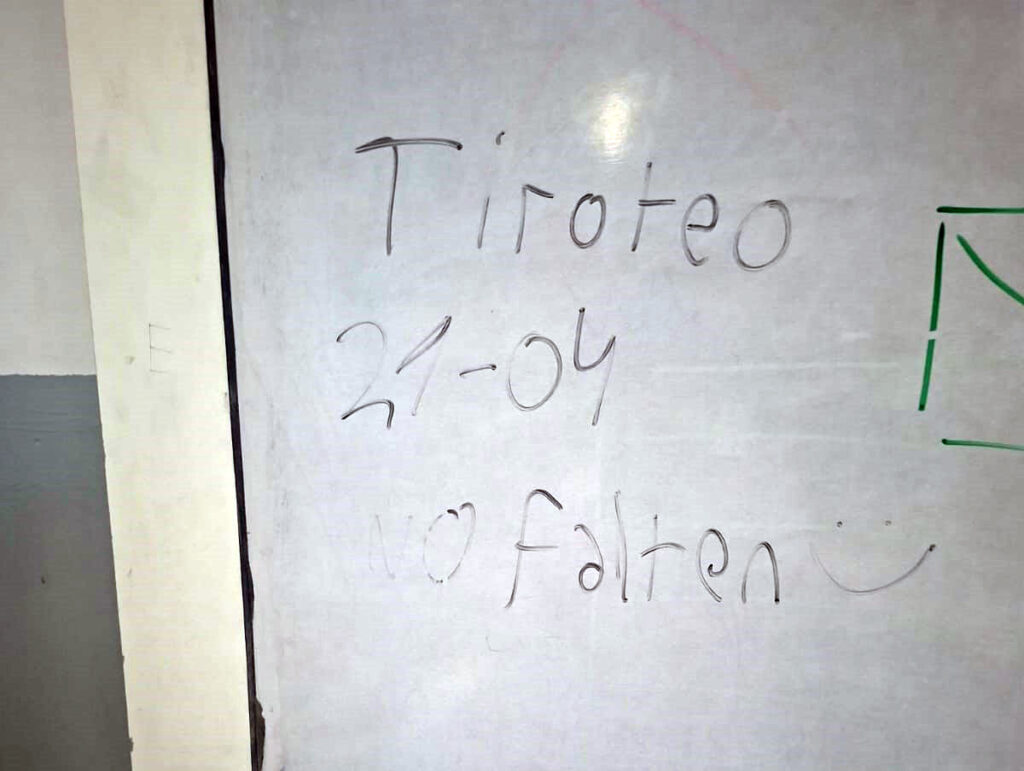 Tiroteo
21-04
NO falten :)
E